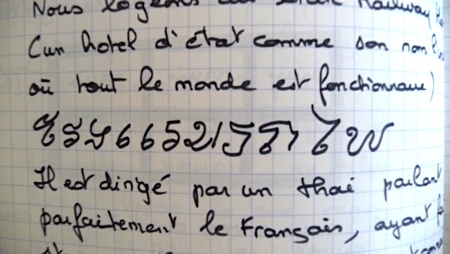 Nous logeons au Railway
(un hotel d'état comme son nom
où tout le monde est fonctionnaire)
โรงแรมรถไฟ
Il est dirigé par un thai parlant
parfaitement le Français, ayant